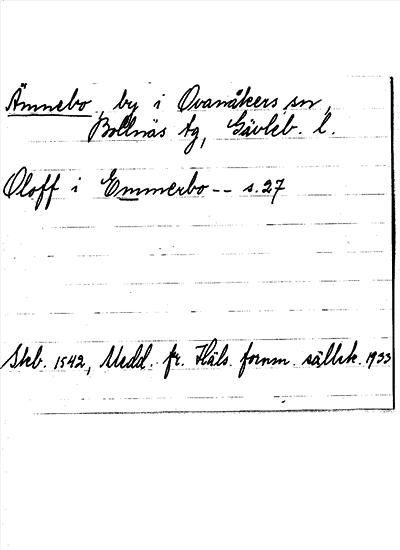 Ämnebo, by i Ovanåkers sn,
Bollnäs tg, Gävleb. l.
Oloff i Emmerbo -- s. 27
Skb. 1542, Medd. fr. Häls. fornm. sällsk. 1933